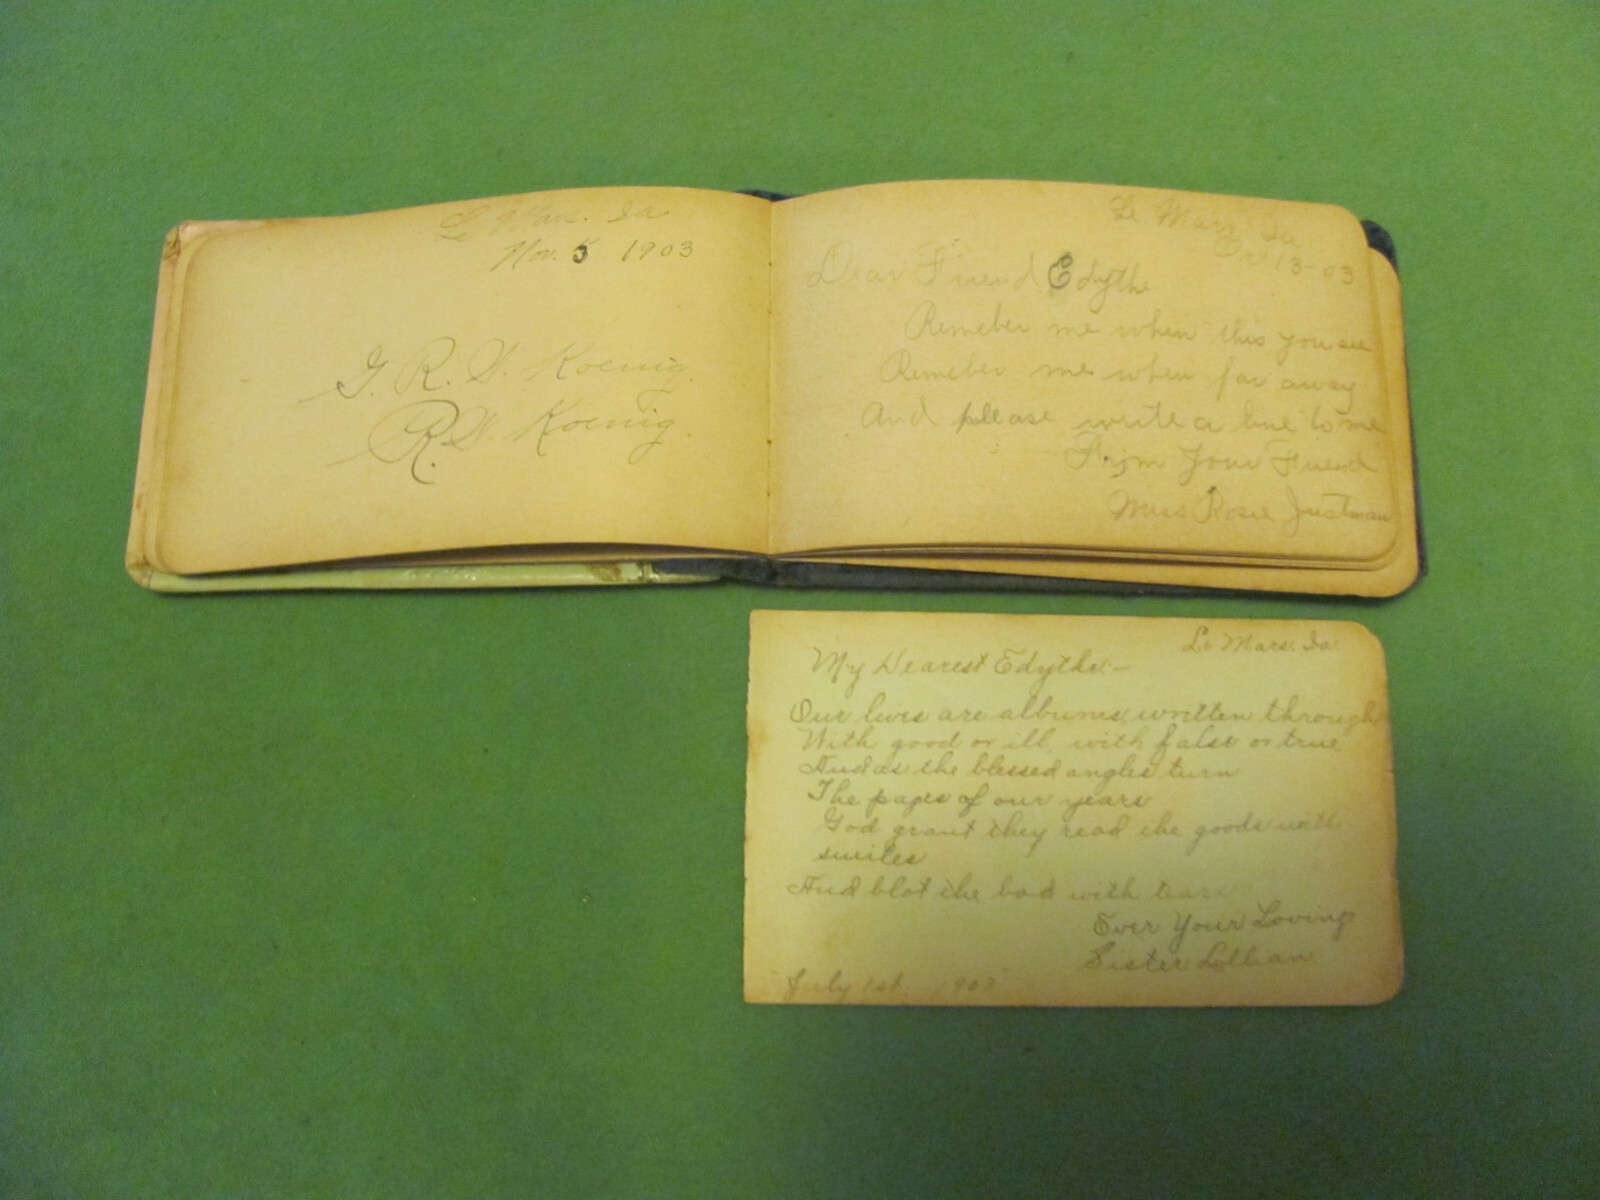 Le Mars. Ia
Nov. 5 1903
G. R. W. Koenig.
R. W. Koenig.
Le Mars Ia.
Oct 13-03
Dear Friend Edythe
Remeber me when this you see
Remeber me when far away
And please write a line to me
From Your Friend
Miss Rosie Justman
Le Mars. Ia.
My Dearest Edythe:-
Our lives are albums written through
With good or ill, with false or true
And as the blessed angles turn
The pages of our years
God grant they read the goods with
smiles
And blot the bad with tears
Ever Your Loving
Sister Lillian.
July 1st 1903